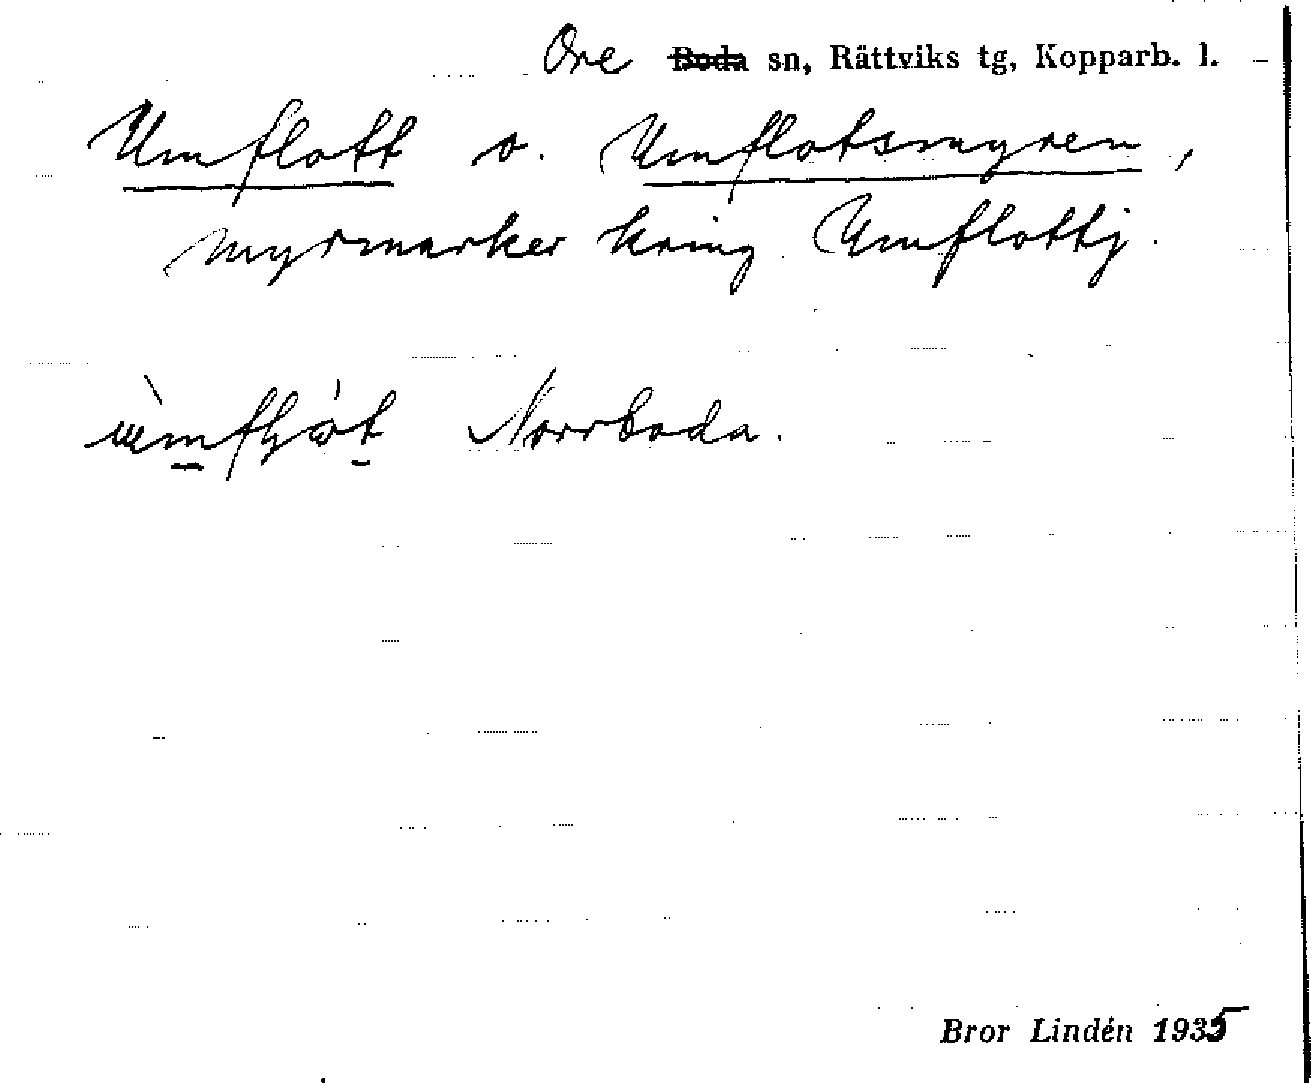 Ore Boda sn, Rättviks tg, Kopparb. l.
Umflott o. Umflotsmyren,
myrmarker kring Umflottj.
Norrboda.
Bror Lindén 1935